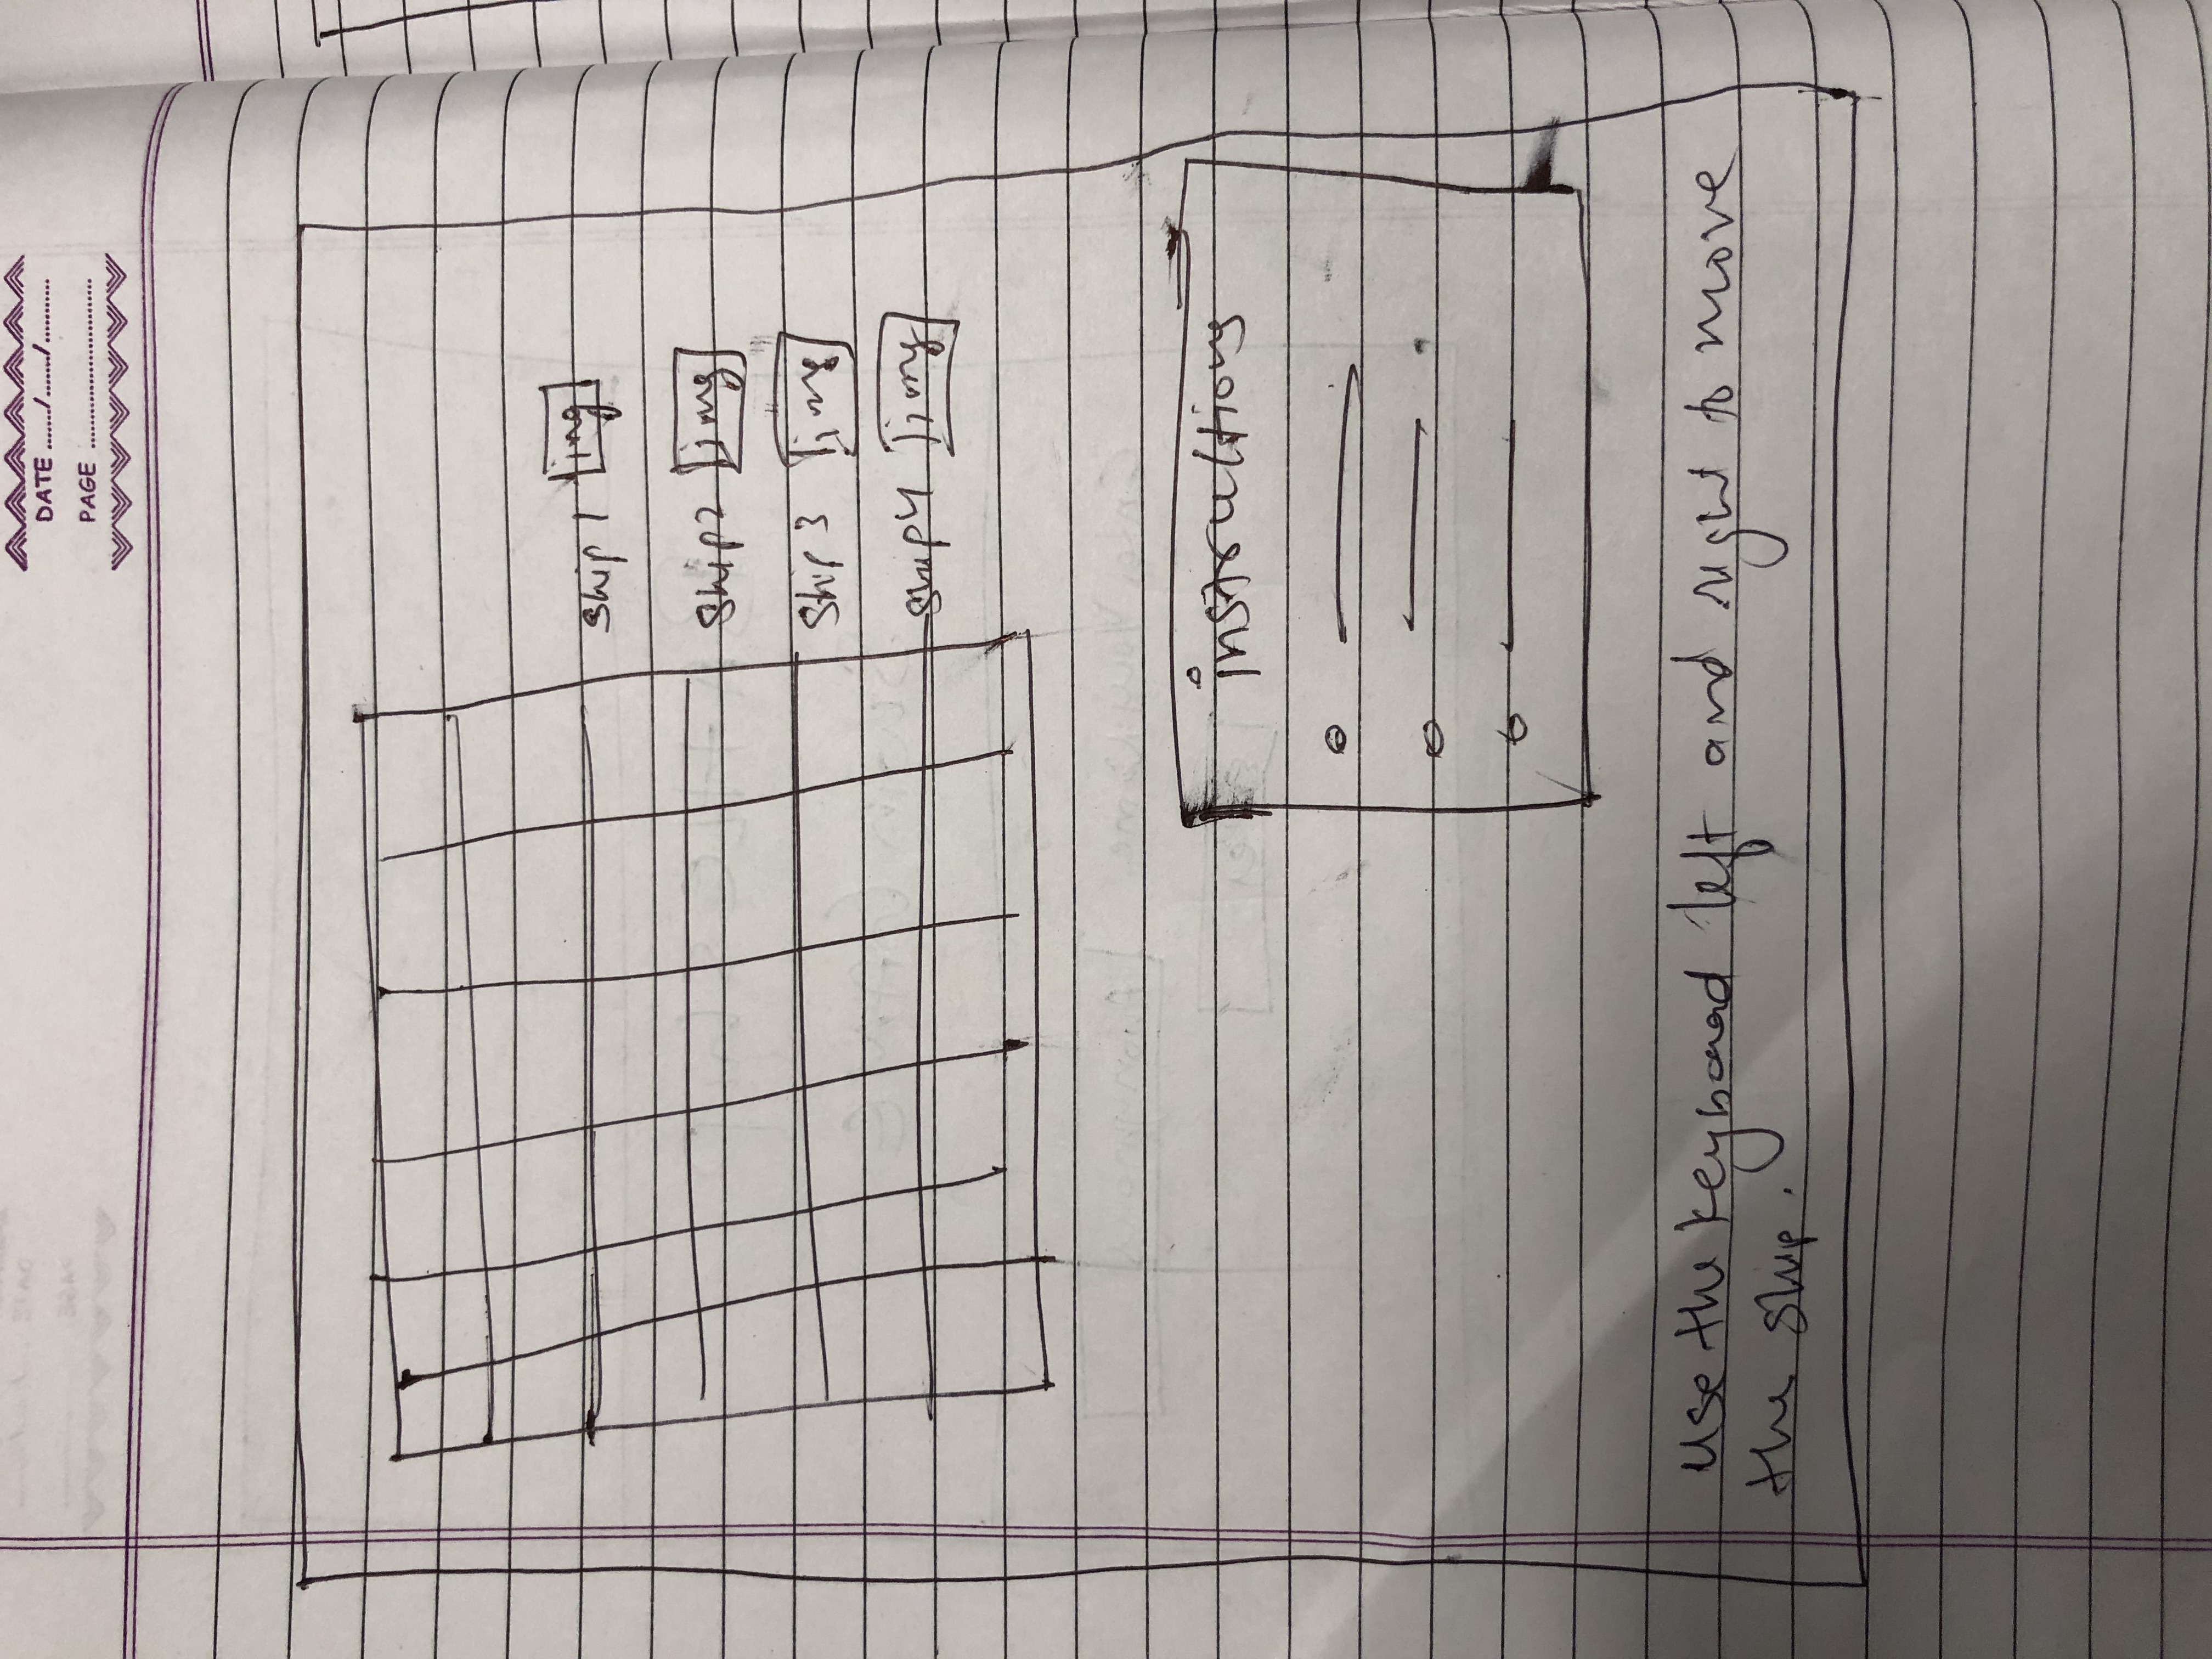 DATE ......./......./...........
PAGE ..............................
Ship 1 img
Ship 2 img
Ship 3 img
Ship 4 img
instructions
use the keyboard left and right to move
the ship.